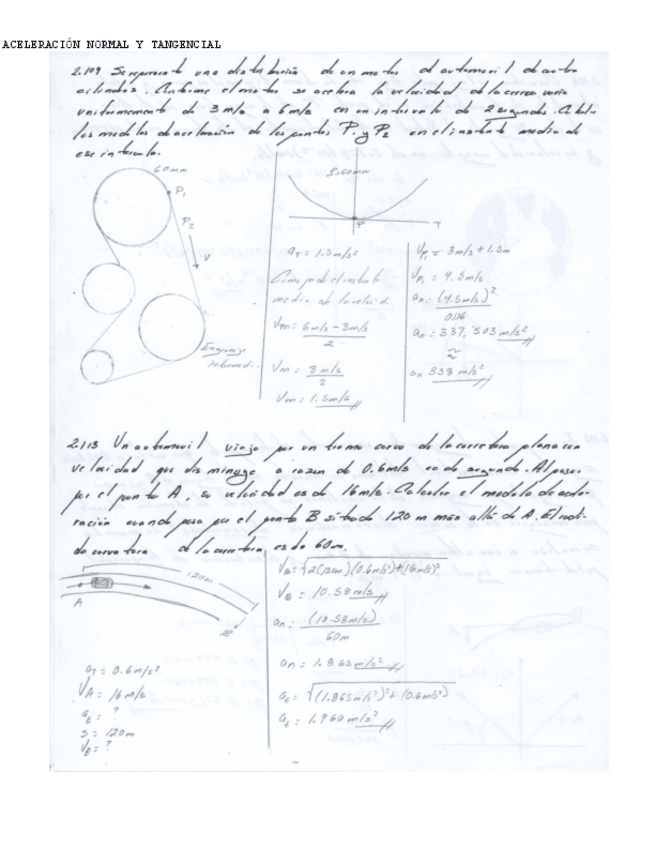 ACELERACIÓN NORMAL Y TANGENCIAL
2.109 Se representa una distribución de un motor de automovil de cuatro
cilindros. Conforme el motor se acelera la velocidad de la correa varia
uniformemente de 3 m/s a 6 m/s en un intervalo de 2 segundos. Calcular
los modulos de aceleración de los puntos P1 y P2 en el instante medio de
ese intervalo.
60mm
P1
P2
V
Engranaje
intermedi..
60mm
P
T
aT = 1.5m/s²
medio de la
Vm = 6m/s - 3m/s
2
Vm = 3m/s
2
Vm = 1.5m/s
VP1 = 3m/s + 1.5m
VP1 = 4.5m/s
an = (4.5m/s)²
0.06
an = 337.503 m/s²
≈
an 338 m/s²
2.113 Un automovil viaja por un tramo curvo de la carretera plana con
velocidad que disminuye a razon de 0.6m/s cada segundo. Al pasar
por el punto A, su velocidad es de 16m/s. Calcular el modulo de acele-
ración cuando pasa por el punto B situado 120 m más allá de A. El radio
de curvatura de la carretera es de 60m.
120m
A
B
aT = 0.6m/s²
VA = 16m/s
at = ?
S = 120m
VB = ?
VB = √2(120m)(0.6m/s²)+(16m/s)²
VB = 10.58m/s
an = (10.58m/s)
60m
an = 1.865m/s²
at = √(1.865m/s²)² + (0.6m/s²)
at = 1.960 m/s²